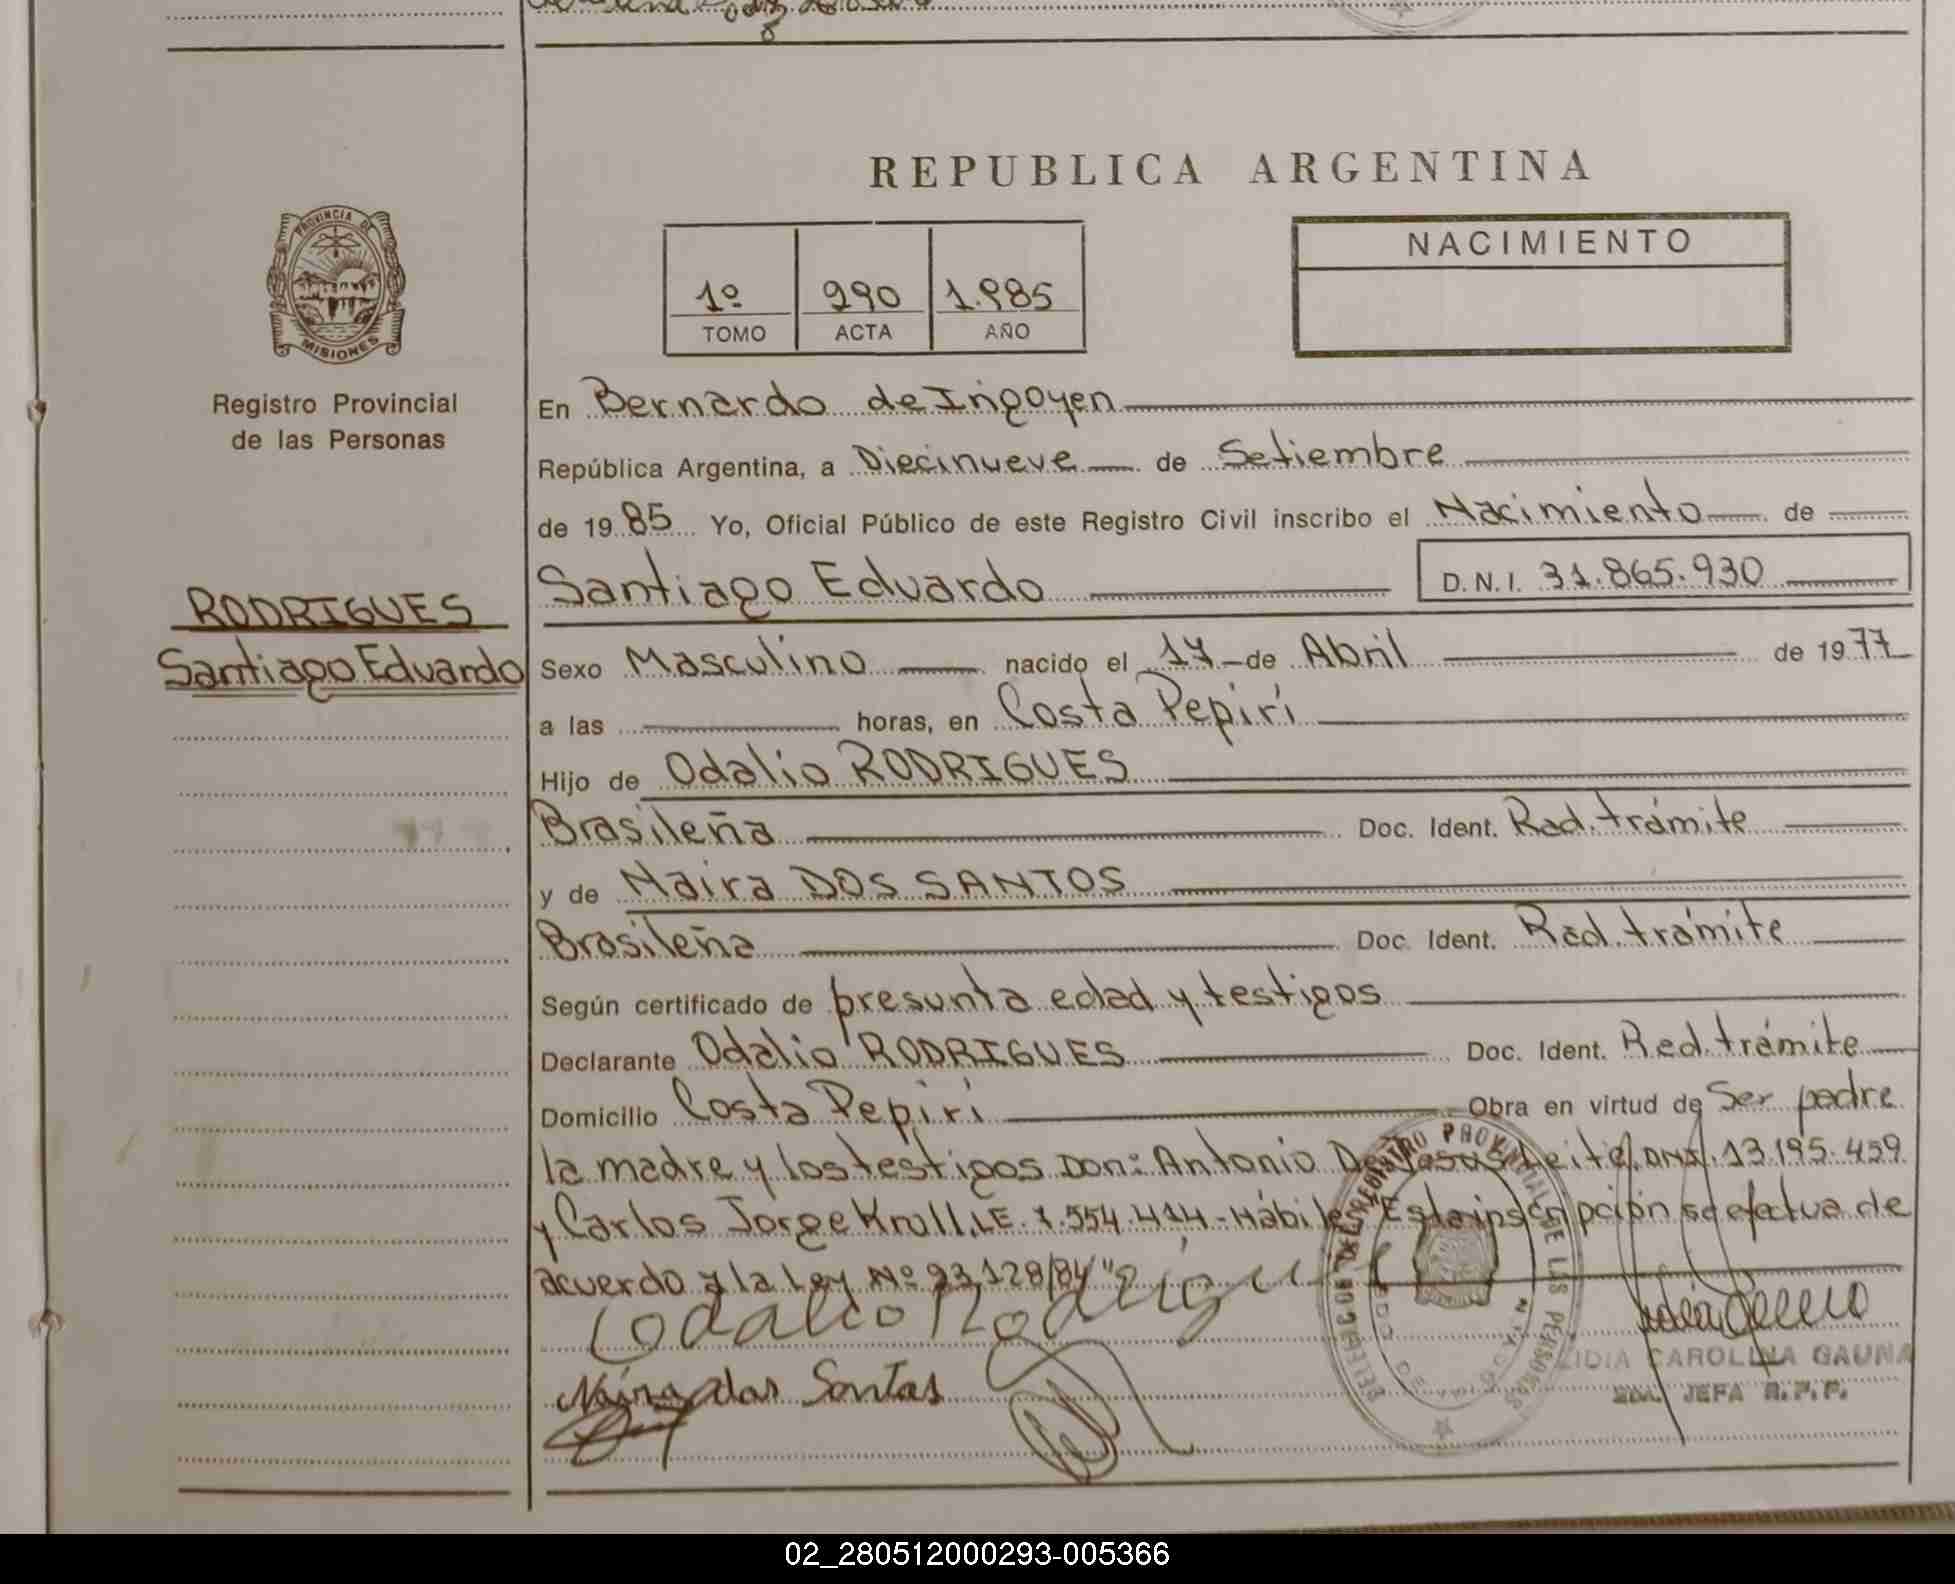 REPUBLICA ARGENTINA
PROVINCIA DE
MISIONES
Registro Provincial
de las Personas
RODRIGUES
Santiago Eduardo
1º 290 1.985
TOMO ACTA AÑO
NACIMIENTO
En Bernardo de Irigoyen
República Argentina, a Diecinueve de Setiembre
de 19 85 Yo, Oficial Público de este Registro Civil inscribo el Nacimiento de
Santiago Eduardo D.N.I. 31.865.930
Sexo Masculino nacido el 17 de Abril de 1977
a las horas, en Costa Pepirí
Hijo de Odalio RODRIGUES
Brasileña Doc. Ident. Rad. trámite
y de Naira DOS SANTOS
Brasileña Doc. Ident. Rad. trámite
Según certificado de presunta edad y testigos
Declarante Odalio RODRIGUES Doc. Ident. Rad. trámite
Domicilio Costa Pepirí Obra en virtud de Ser padre
la madre y los testigos Don: Antonio De Jesus Leite, DNI. 13.195.459
y Carlos Jorge Kroll, LE. 7.554.414 - Hábiles "Esta inscripción se efectua de
acuerdo a la Ley Nº 23.128/84"
Odalio Rodrigues
Naira dos Santos
LIDIA CAROLINA GAUNA
JEFA R.P.P.
02_280512000293-005366